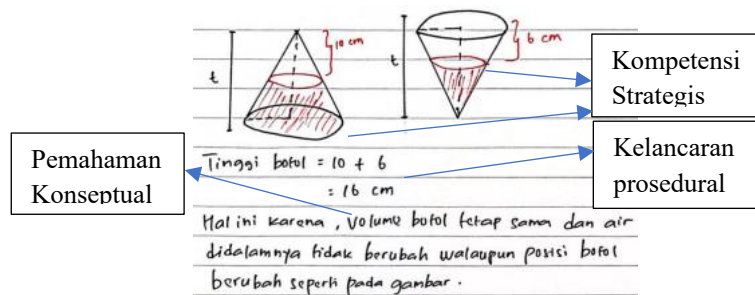 10 cm
6 cm
t
t
Kompetensi
Strategis
Pemahaman
Konseptual
Kelancaran
prosedural
Tinggi botol = 10 + 6
= 16 cm
Hal ini karena, volume botol tetap sama dan air
didalamnya tidak berubah walaupun posisi botol
berubah seperti pada gambar.